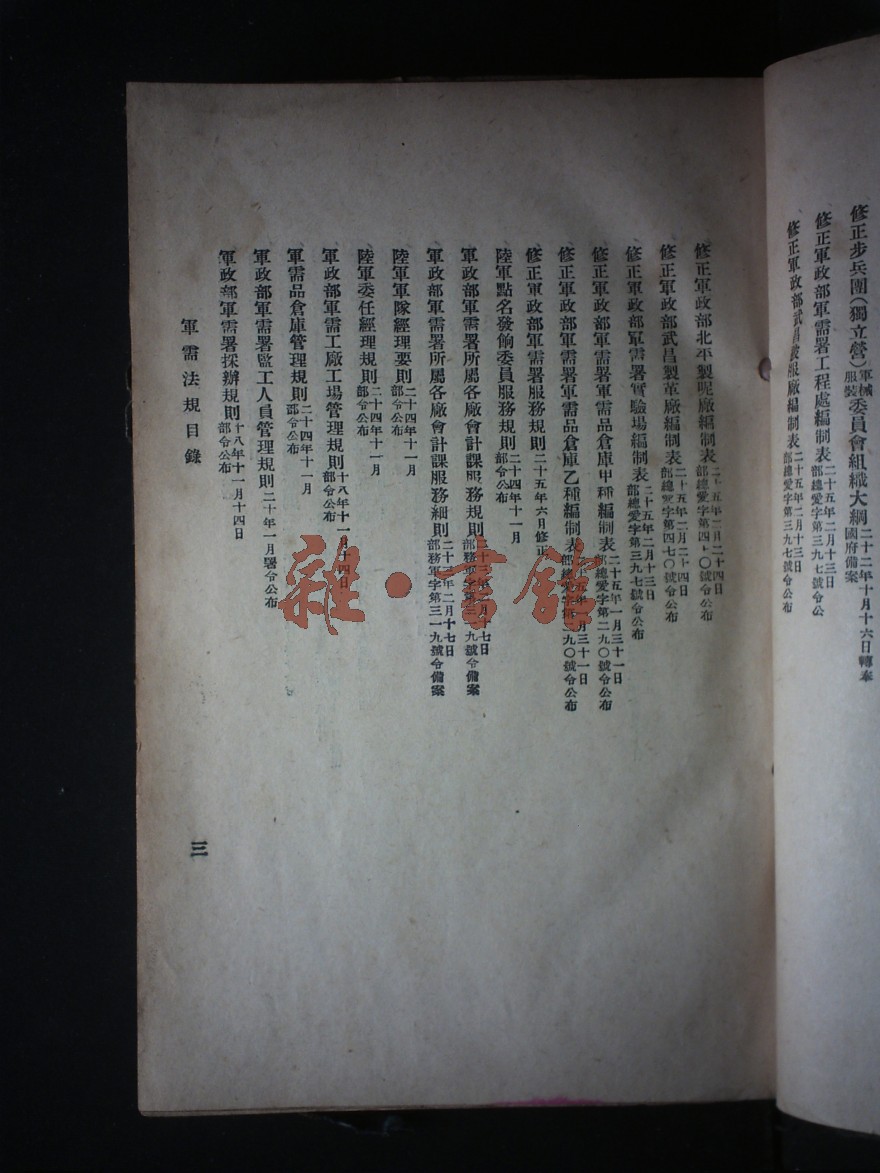 修正步兵團(獨立營)軍械服裝委員會組織大綱二十二年十月十六日轉奉國府備案
修正軍政部軍需署工程處編制表二十五年二月十三日部總愛字第三九七號令公
修正軍政部武昌被服廠編制表二十五年二月十三日部總愛字第三九七號令公布
修正軍政部北平製呢廠編制表二十五年二月二十四日部總愛字第四七〇號令公布
修正軍政部武昌製革廠編制表二十五年二月二十四日部總愛字第四七〇號令公布
修正軍政部軍需署實驗場編制表二十五年二月十三日部總愛字第三九七號令公布
修正軍政部軍需署軍需品倉庫甲種編制表二十五年一月三十一日部總愛字第二九〇號令公布
修正軍政部軍需署軍需品倉庫乙種編制表二十五年一月三十一日部總愛字第二九〇號令公布
修正軍政部軍需署服務規則二十五年六月修正
陸軍點名發餉委員服務規則二十四年十一月部令公布
軍政部軍需署所屬各廠會計課服務規則二十三年二月十七日部務軍字第三一九號令備案
軍政部軍需署所屬各廠會計課服務細則二十三年二月十七日部務軍字第三一九號令備案
陸軍軍隊經理要則二十四年十一月部令公布
陸軍委任經理規則二十四年十一月部令公布
軍政部軍需工廠工場管理規則十八年十一月十四日部令公布
軍需品倉庫管理規則二十四年十一月部令公布
軍政部軍需署監工人員管理規則二十年一月署令公布
軍政部軍需署採辦規則十八年十一月十四日部令公布
軍需法規目錄
三
雜·書館